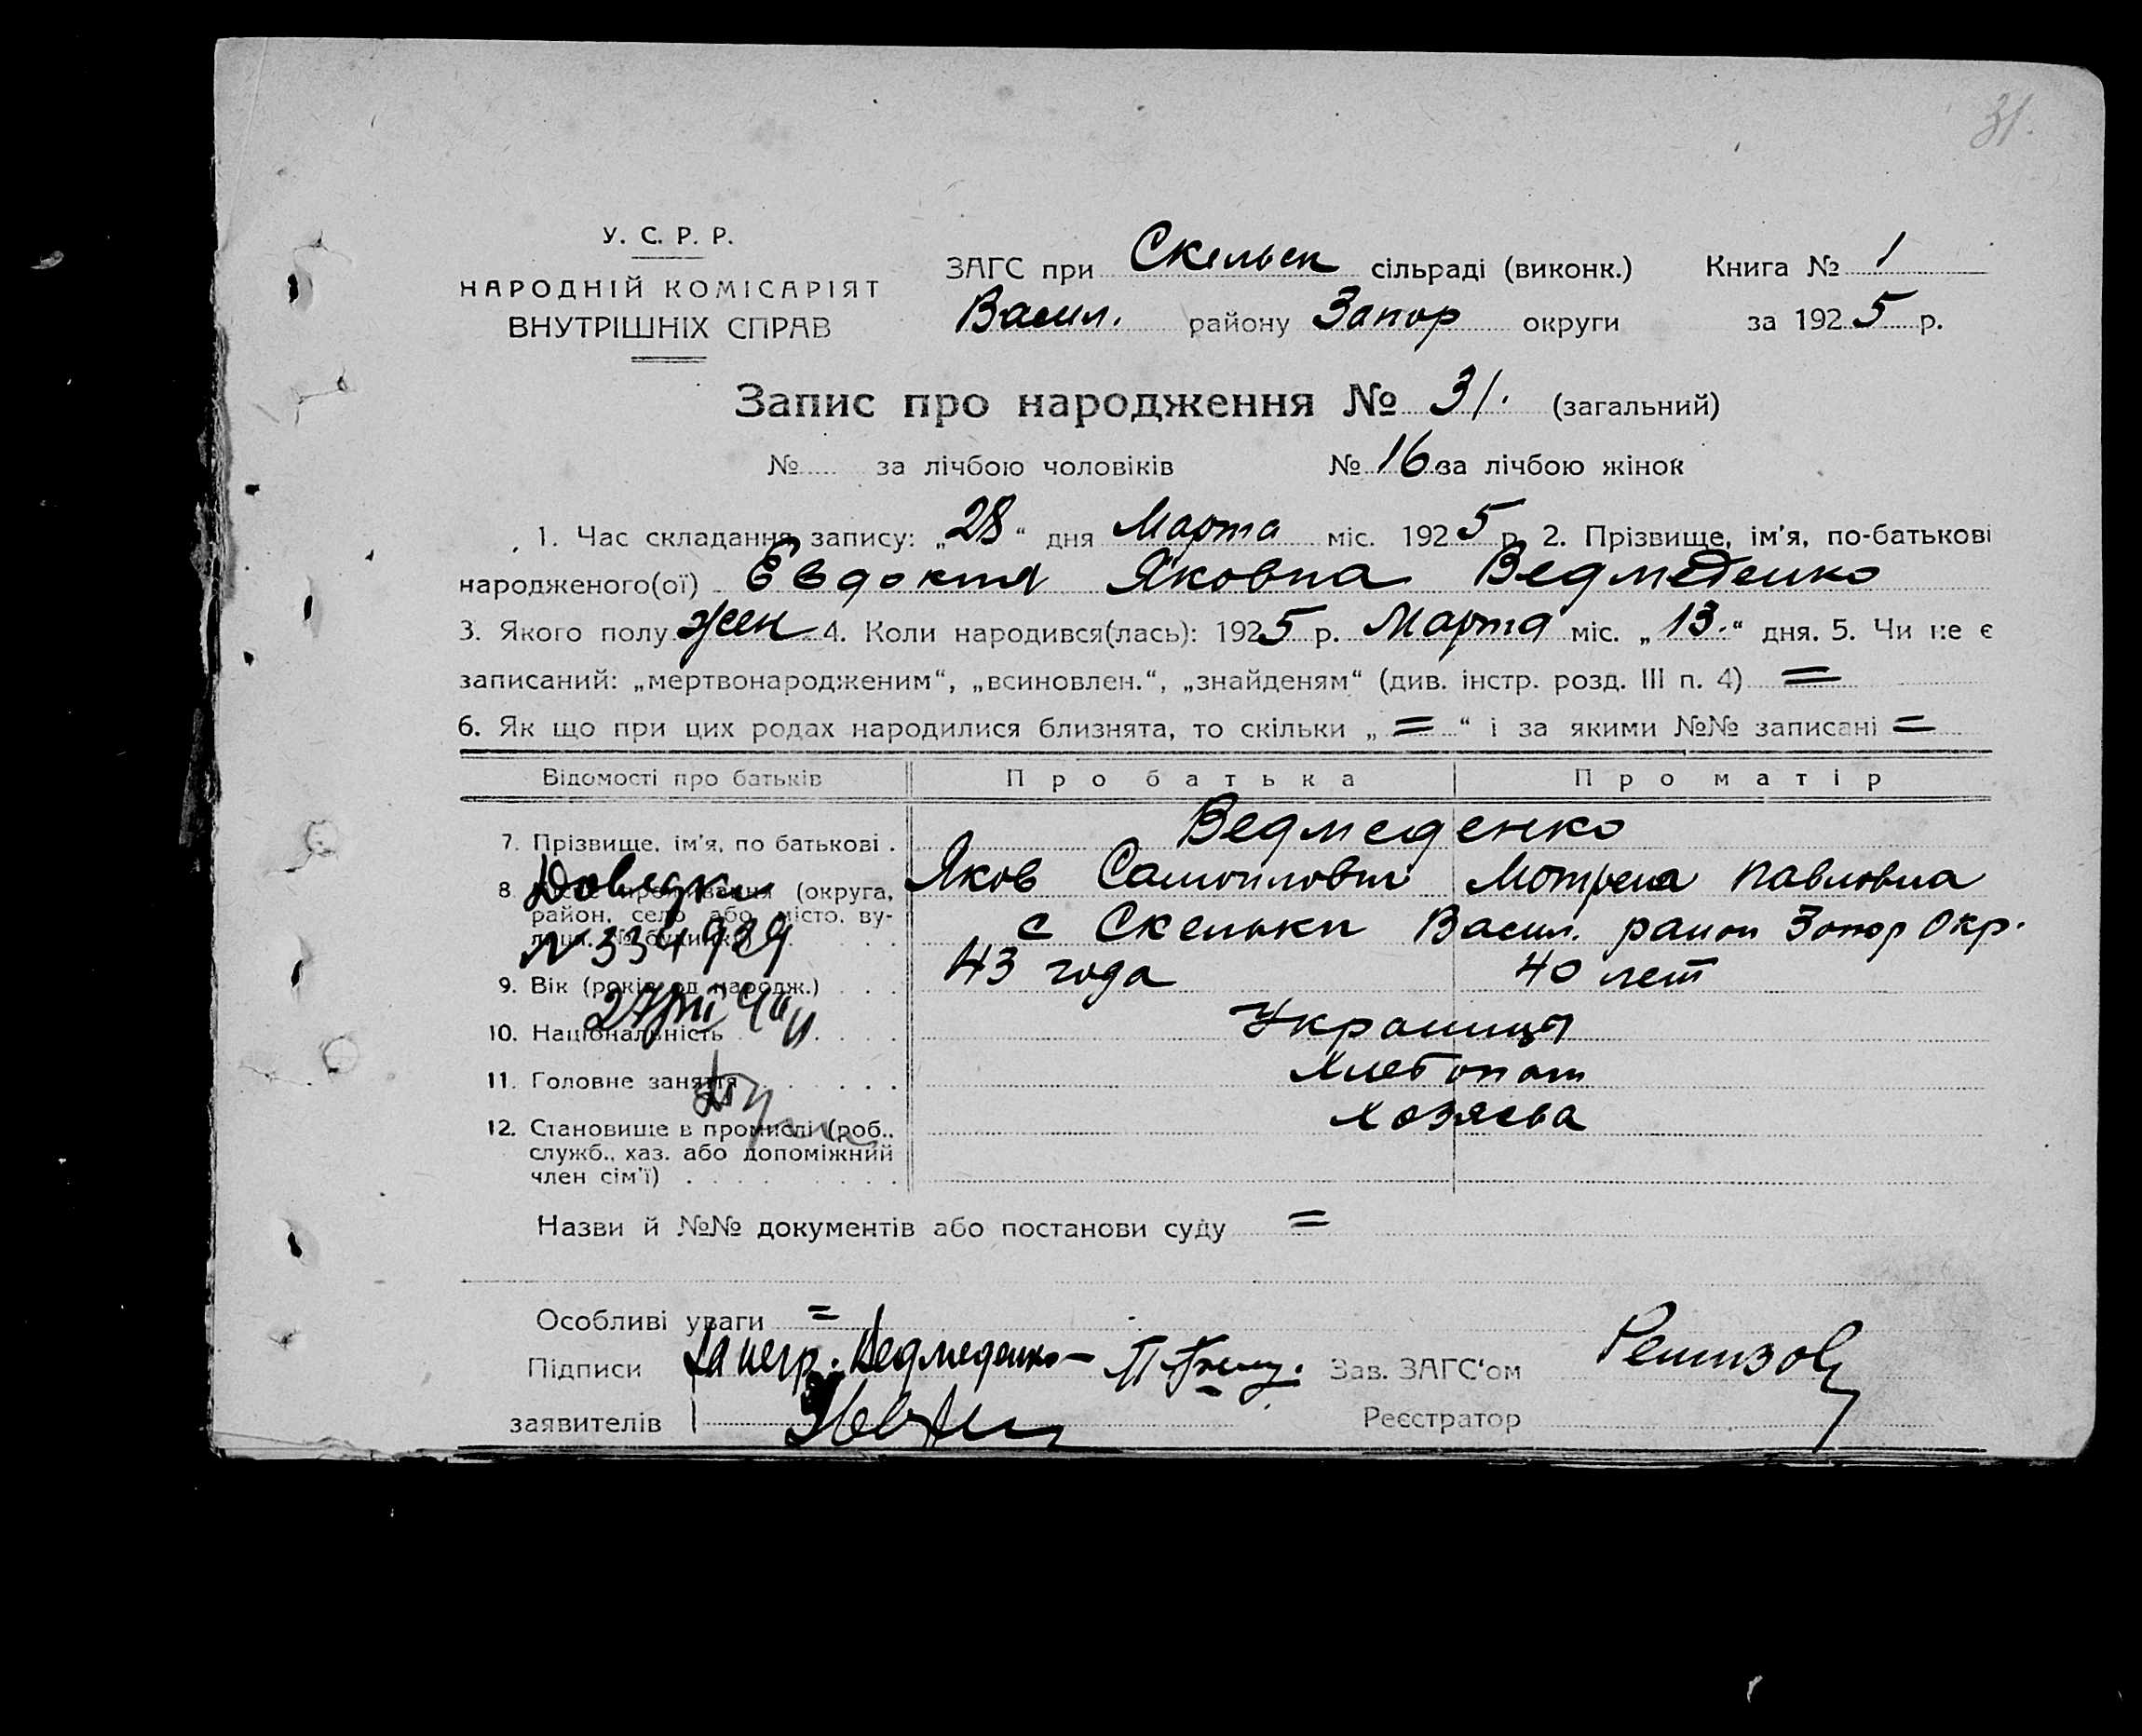 31.
У. С. Р. Р.
НАРОДНІЙ КОМІСАРІЯТ
ВНУТРІШНІХ СПРАВ
ЗАГС при Скельск сільраді (виконк.) Книга № 1
Васил. району Запор округи за 1925 р.
Запис про народження № 31. (загальний)
№ за лічбою чоловіків № 16 за лічбою жінок
1. Час складання запису: „28“ дня Марта міс. 1925 р. 2. Прізвище, ім'я, по-батькові
народженого(ої) Евдокия Яковна Ведмеденко
3. Якого полу жен 4. Коли народився(лась): 1925 р. Марта міс. „13.“ дня. 5. Чи не є
записаний: „мертвонародженим“, „всиновлен.“, „знайденям“ (див. інстр. розд. III п. 4) =
6. Як що при цих родах народилися близнята, то скільки „=“ і за якими №№ записані =
Відомості про батьків Про батька Про матір
Ведмеденко
7. Прізвище, ім'я, по батькові .
Яков Самойлович Мотрена Павловна
8. (округа,
район, село або місто, ву-
с Скельки Васил. район Запор Окр.
№ 334989
43 года 40 лет
9. Вік (років од народж.)
Украинцы
10. Національність
Хлебопаш
11. Головне заняття
Хозяева
12. Становище в промислі (роб.,
служб., хаз. або допоміжний
член сім'ї)
Назви й №№ документів або постанови суду =
Особливі уваги =
Підписи Ведмеденко Зав. ЗАГС'ом
заявителів Реєстратор